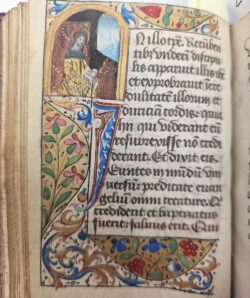 IN illo tp̄e. Recūben
tibus undecim discipu
lis apparuit illis ihs̄
et exprobrauit incre
dulitatē illorum et
duritiam cordis: quia
hii qui uiderant eum
resurrexisse nō credi
derant. Et dixit eis.
Euntes in mūdū vni
uersū predicate euan
gelium omni creature. Qui
crediderit et baptizatus
fuerit: saluus erit. Qui